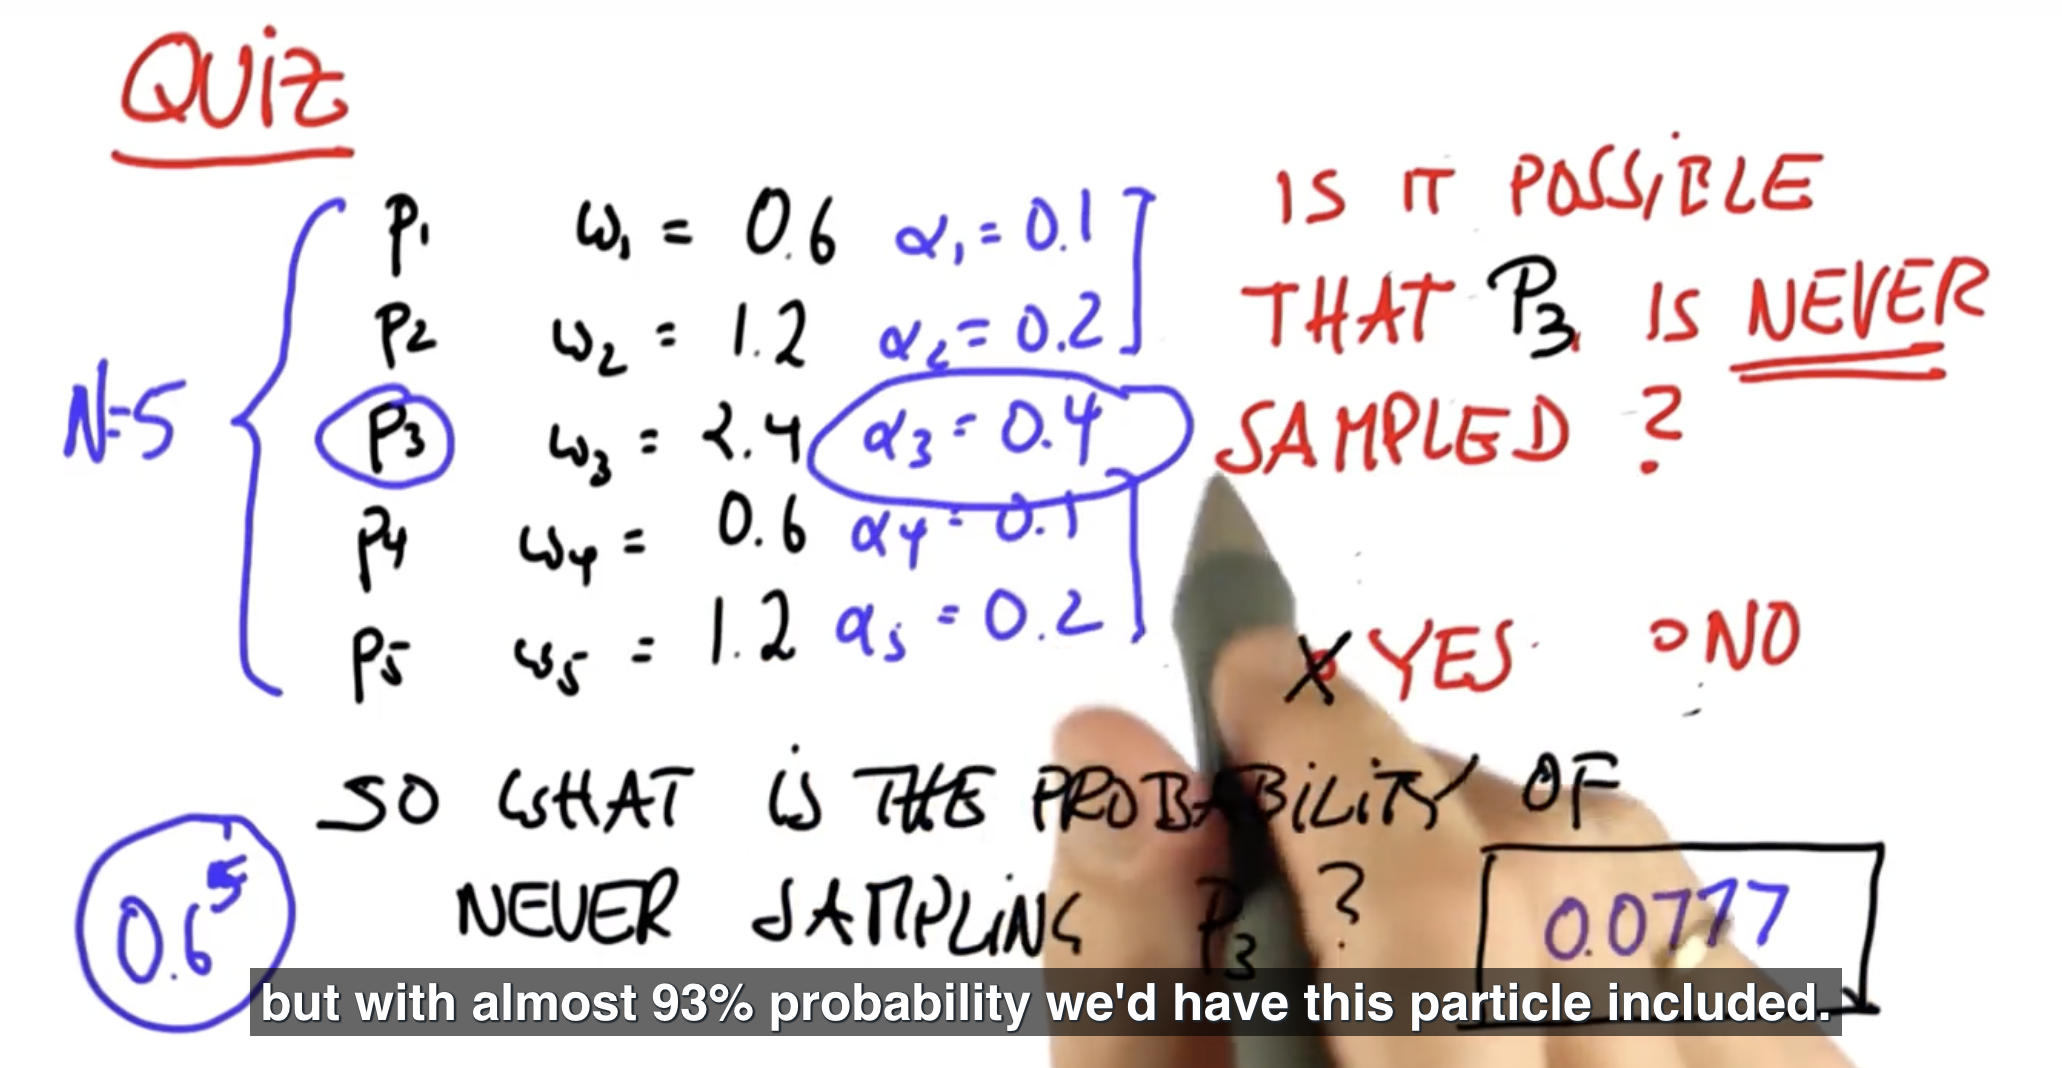 QUIZ
P1 ω1 = 0.6 α1 = 0.1
P2 ω2 = 1.2 α2 = 0.2
N=5 P3 ω3 = 2.4 α3 = 0.4
P4 ω4 = 0.6 α4 = 0.1
P5 ω5 = 1.2 α5 = 0.2
IS IT POSSIBLE
THAT P3 IS NEVER
SAMPLED ?
X YES O NO
SO WHAT IS THE PROBABILITY OF
NEVER SAMPLING P3 ?
0.6^5
0.0777
but with almost 93% probability we'd have this particle included.